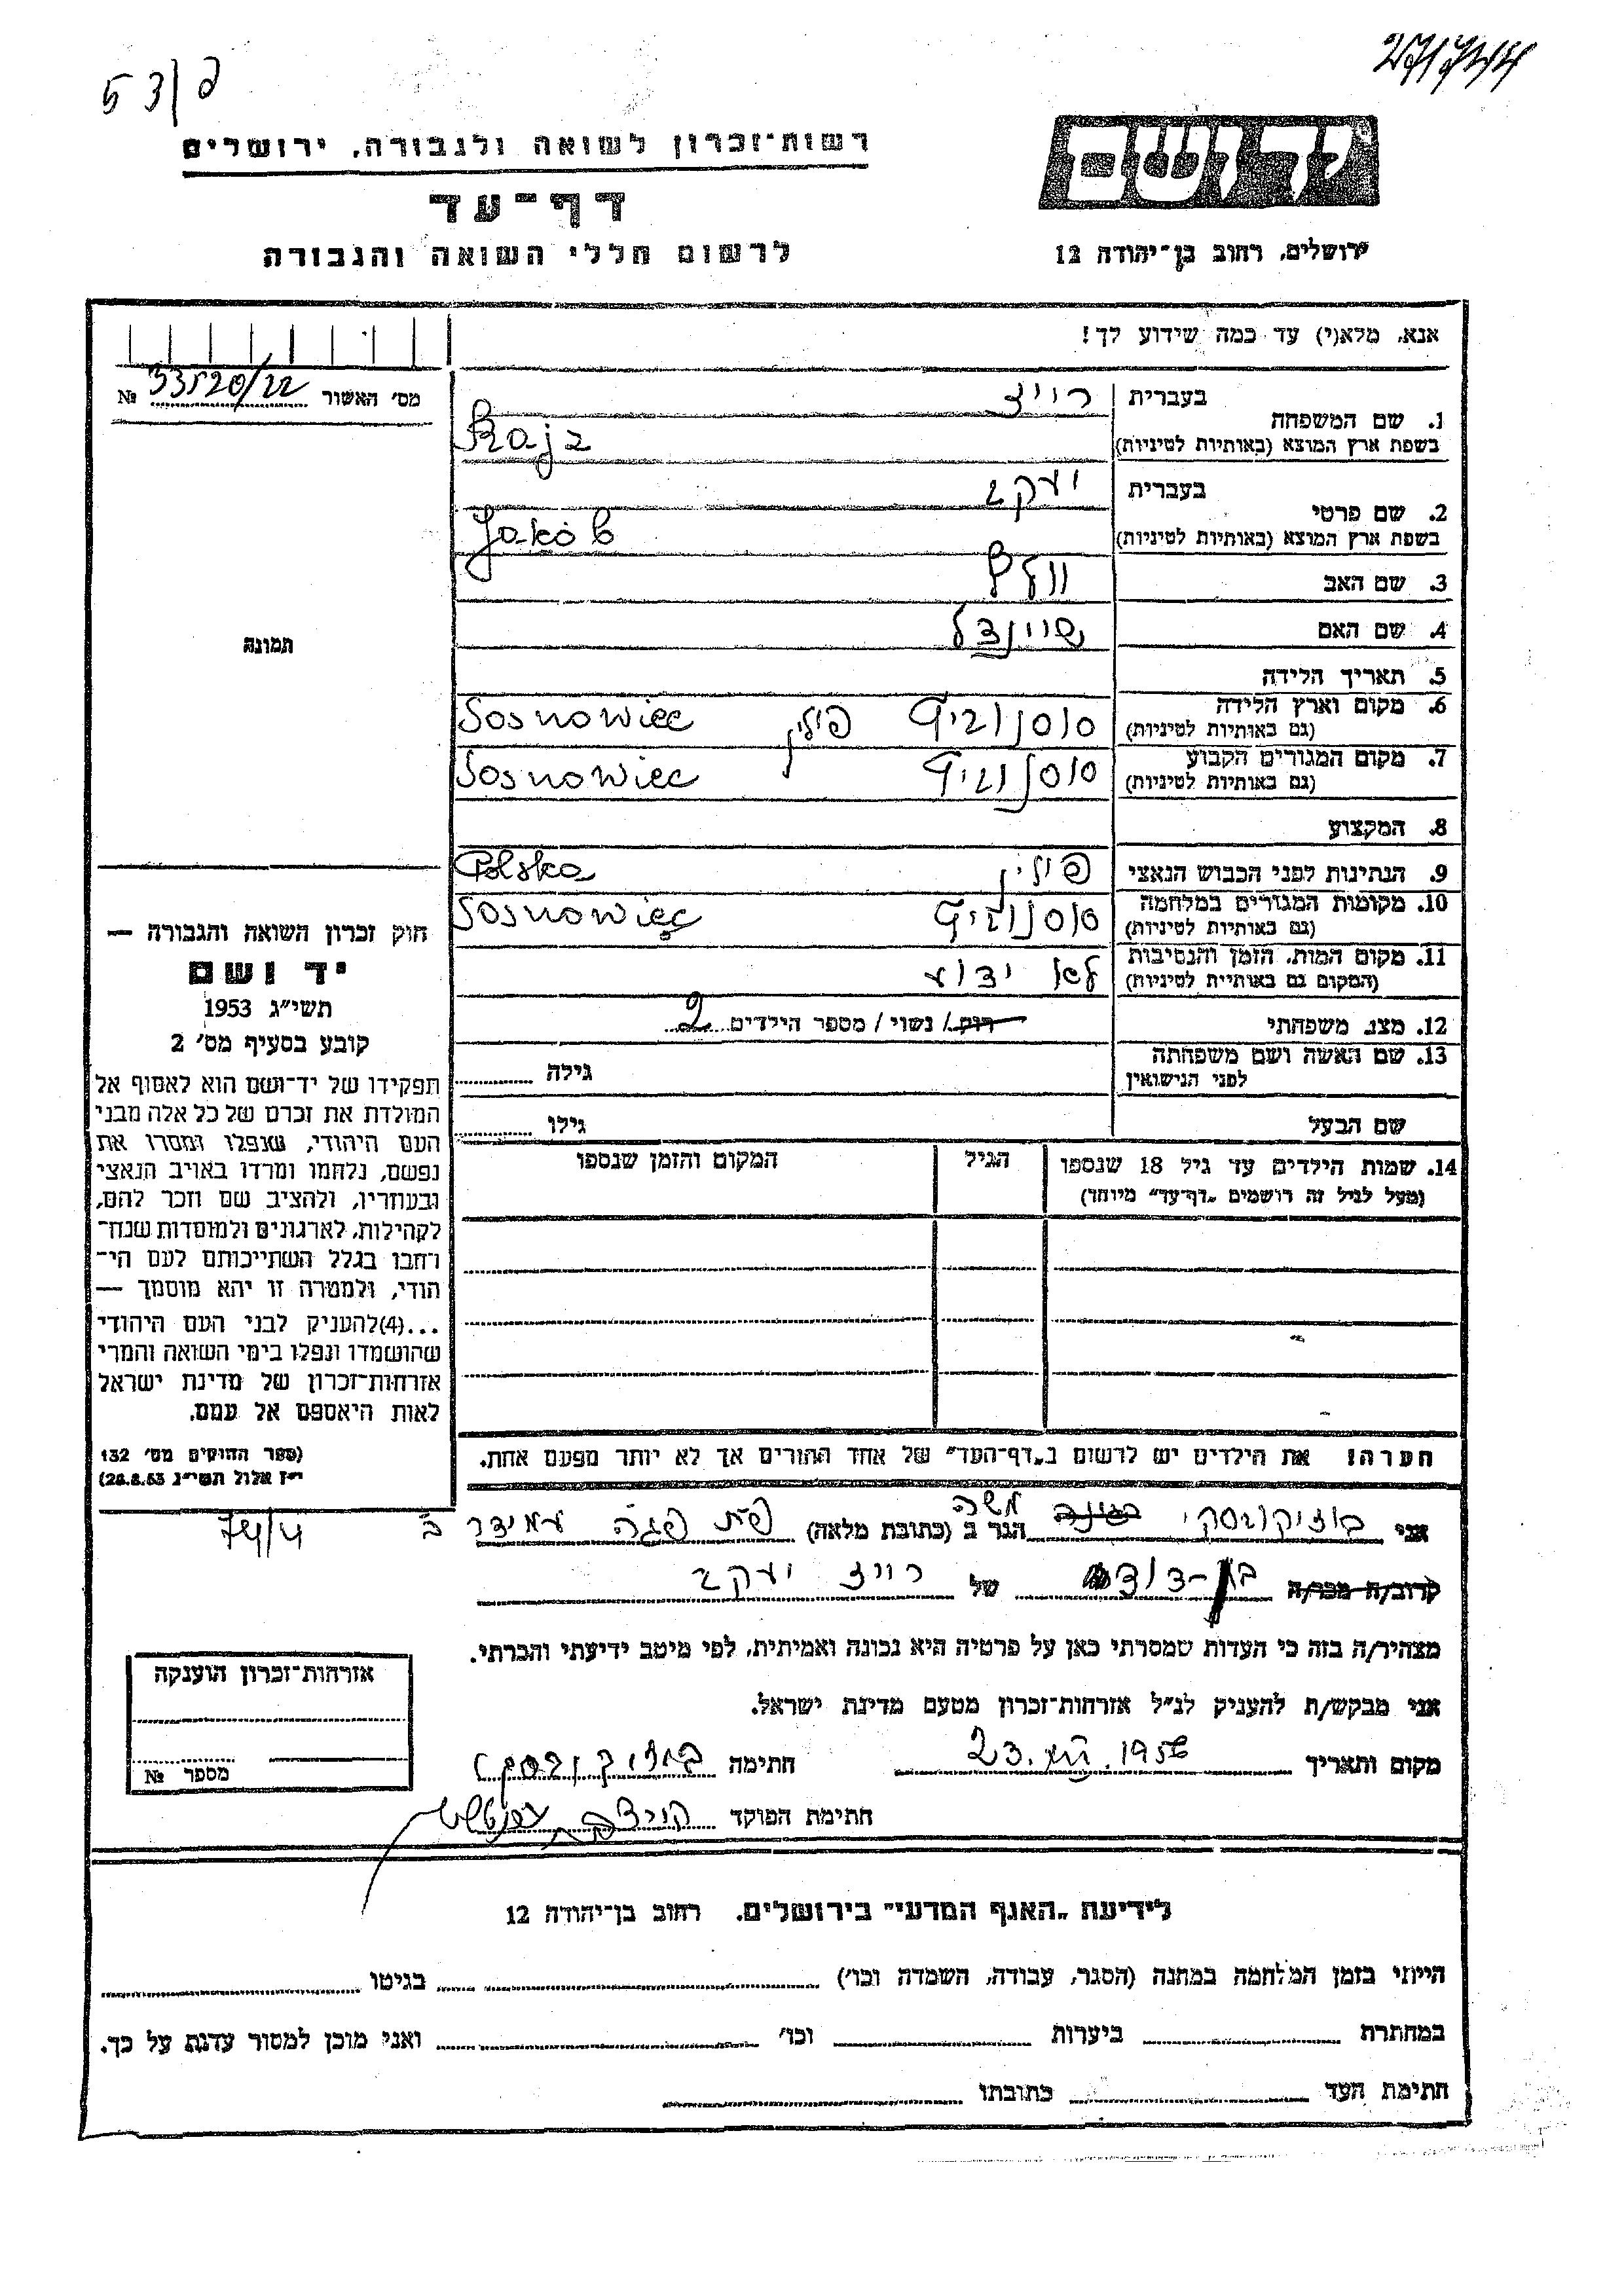 53/פ
רשות־זכרון לשואה ולגבורה, ירושלים
דף־עד
לרשום חללי השואה והגבורה
יד ושם
ירושלים, רחוב בן־יהודה 12
אנא, מלא(י) עד כמה שידוע לך!
מס׳ האשור 33520/22 №
תמונה
1. שם המשפחה בעברית רייז
בשפת ארץ המוצא (באותיות לטיניות) Rajz
2. שם פרטי בעברית יעקב
בשפת ארץ המוצא (באותיות לטיניות) Jakób
3. שם האב וולף
4. שם האם שיינדל
5. תאריך הלידה
6. מקום וארץ הלידה סוסנוביץ פולין Sosnowiec
(גם באותיות לטיניות)
7. מקום המגורים הקבוע סוסנוביץ Sosnowiec
(גם באותיות לטיניות)
8. המקצוע
9. הנתינות לפני הכבוש הנאצי פולין Polska
10. מקומות המגורים במלחמה סוסנוביץ Sosnowiec
(גם באותיות לטיניות)
11. מקום המות, הזמן והנסיבות לא ידוע
(המקום גם באותיית לטיניות)
12. מצב משפחתי רווק / נשוי / מספר הילדים 2
13. שם האשה ושם משפחתה גילה
לפני הנישואין
שם הבעל גילו
14. שמות הילדים עד גיל 18 שנספו הגיל המקום והזמן שנספו
(מעל לגיל זה רושמים „דף־עד״ מיוחד)
חוק זכרון השואה והגבורה —
יד ושם
תשי״ג 1953
קובע בסעיף מס׳ 2
תפקידו של יד־ושם הוא לאסוף אל
המולדת את זכרם של כל אלה מבני
העם היהודי, שנפלו ומסרו את
נפשם, נלחמו ומרדו באויב הנאצי
ובעוזריו, ולהציב שם וזכר להם,
לקהילות, לארגונים ולמוסדות שנח־
רחבו בגלל השתייכותם לעם הי־
הודי, ולמטרה זו יהא מוסמך —
...(4)להעניק לבני העם היהודי
שהושמדו ונפלו בימי השואה והמרי
אזרחות־זכרון של מדינת ישראל
לאות היאספם אל עמם.
(ספר החוקים מס׳ 132
י״ז אלול תשי״ג 28.8.53)
הערה! את הילדים יש לרשום ב„דף־העד״ של אחד ההורים אך לא יותר מפעם אחת.
משה
אני הגר ב (כתובת מלאה) עמידר ב 74/4
קרוב/ה מכר/ה בן-דודה של רייז יעקב
מצהיר/ה בזה כי העדות שמסרתי כאן על פרטיה היא נכונה ואמיתית, לפי מיטב ידיעתי והכרתי.
אני מבקש/ת להעניק לנ״ל אזרחות־זכרון מטעם מדינת ישראל.
מקום ותאריך 1956 .23 חתימה
חתימת הפוקד
אזרחות־זכרון הוענקה
מספר №
לידיעת „האגף המדעי״ בירושלים, רחוב בן־יהודה 12
הייתי בזמן המלחמה במחנה (הסגר, עבודה, השמדה וכו׳) בגיטו
במחתרת ביערות וכו׳ ואני מוכן למסור עדות על כך.
חתימת העד כתובתו